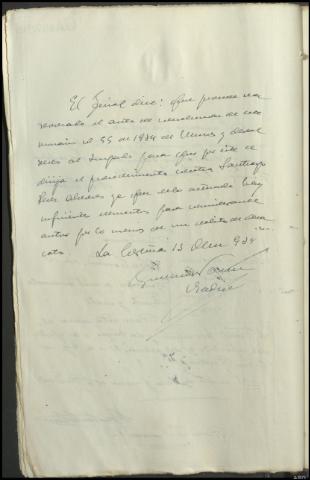 El Fiscal dice: Que procede sea
revocado el auto de conclusion de este
sumario el 55 de 1934 de Muros y devol
verlo al Juzgado para que por éste se
dirija el procedimiento contra Santiago
ya que de lo actuado hay
suficientes elementos para considerarle
autor por lo menos de un delito de desa
cato. La Coruña 13 Dbre 934